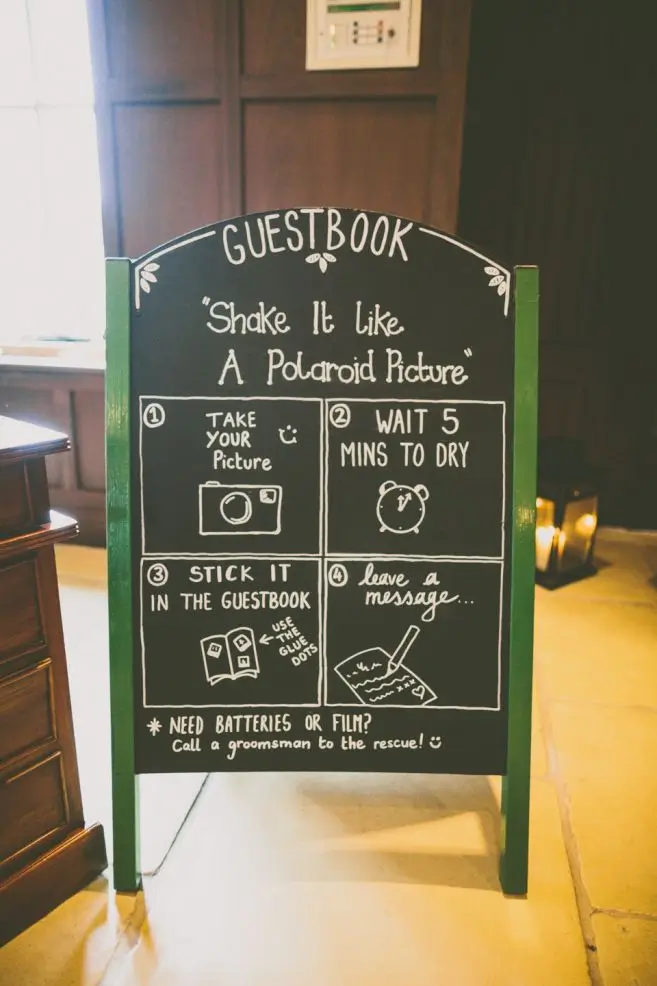 GUESTBOOK
"Shake It Like
A Polaroid Picture"
1 TAKE
YOUR
Picture
2 WAIT 5
MINS TO DRY
3 STICK IT
IN THE GUESTBOOK
USE
THE
GLUE
DOTS
4 leave a
message...
* NEED BATTERIES OR FILM?
Call a groomsman to the rescue!